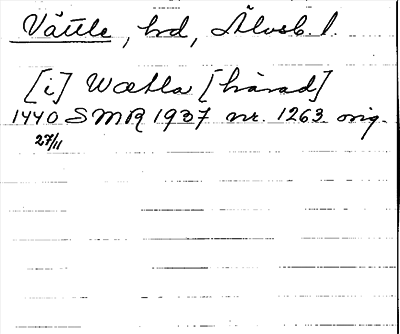 Vättle, hd, Älvsb. l.
[i] Wætla [hårad]
1440 SMR 1937 nr. 1263 orig.
27/11